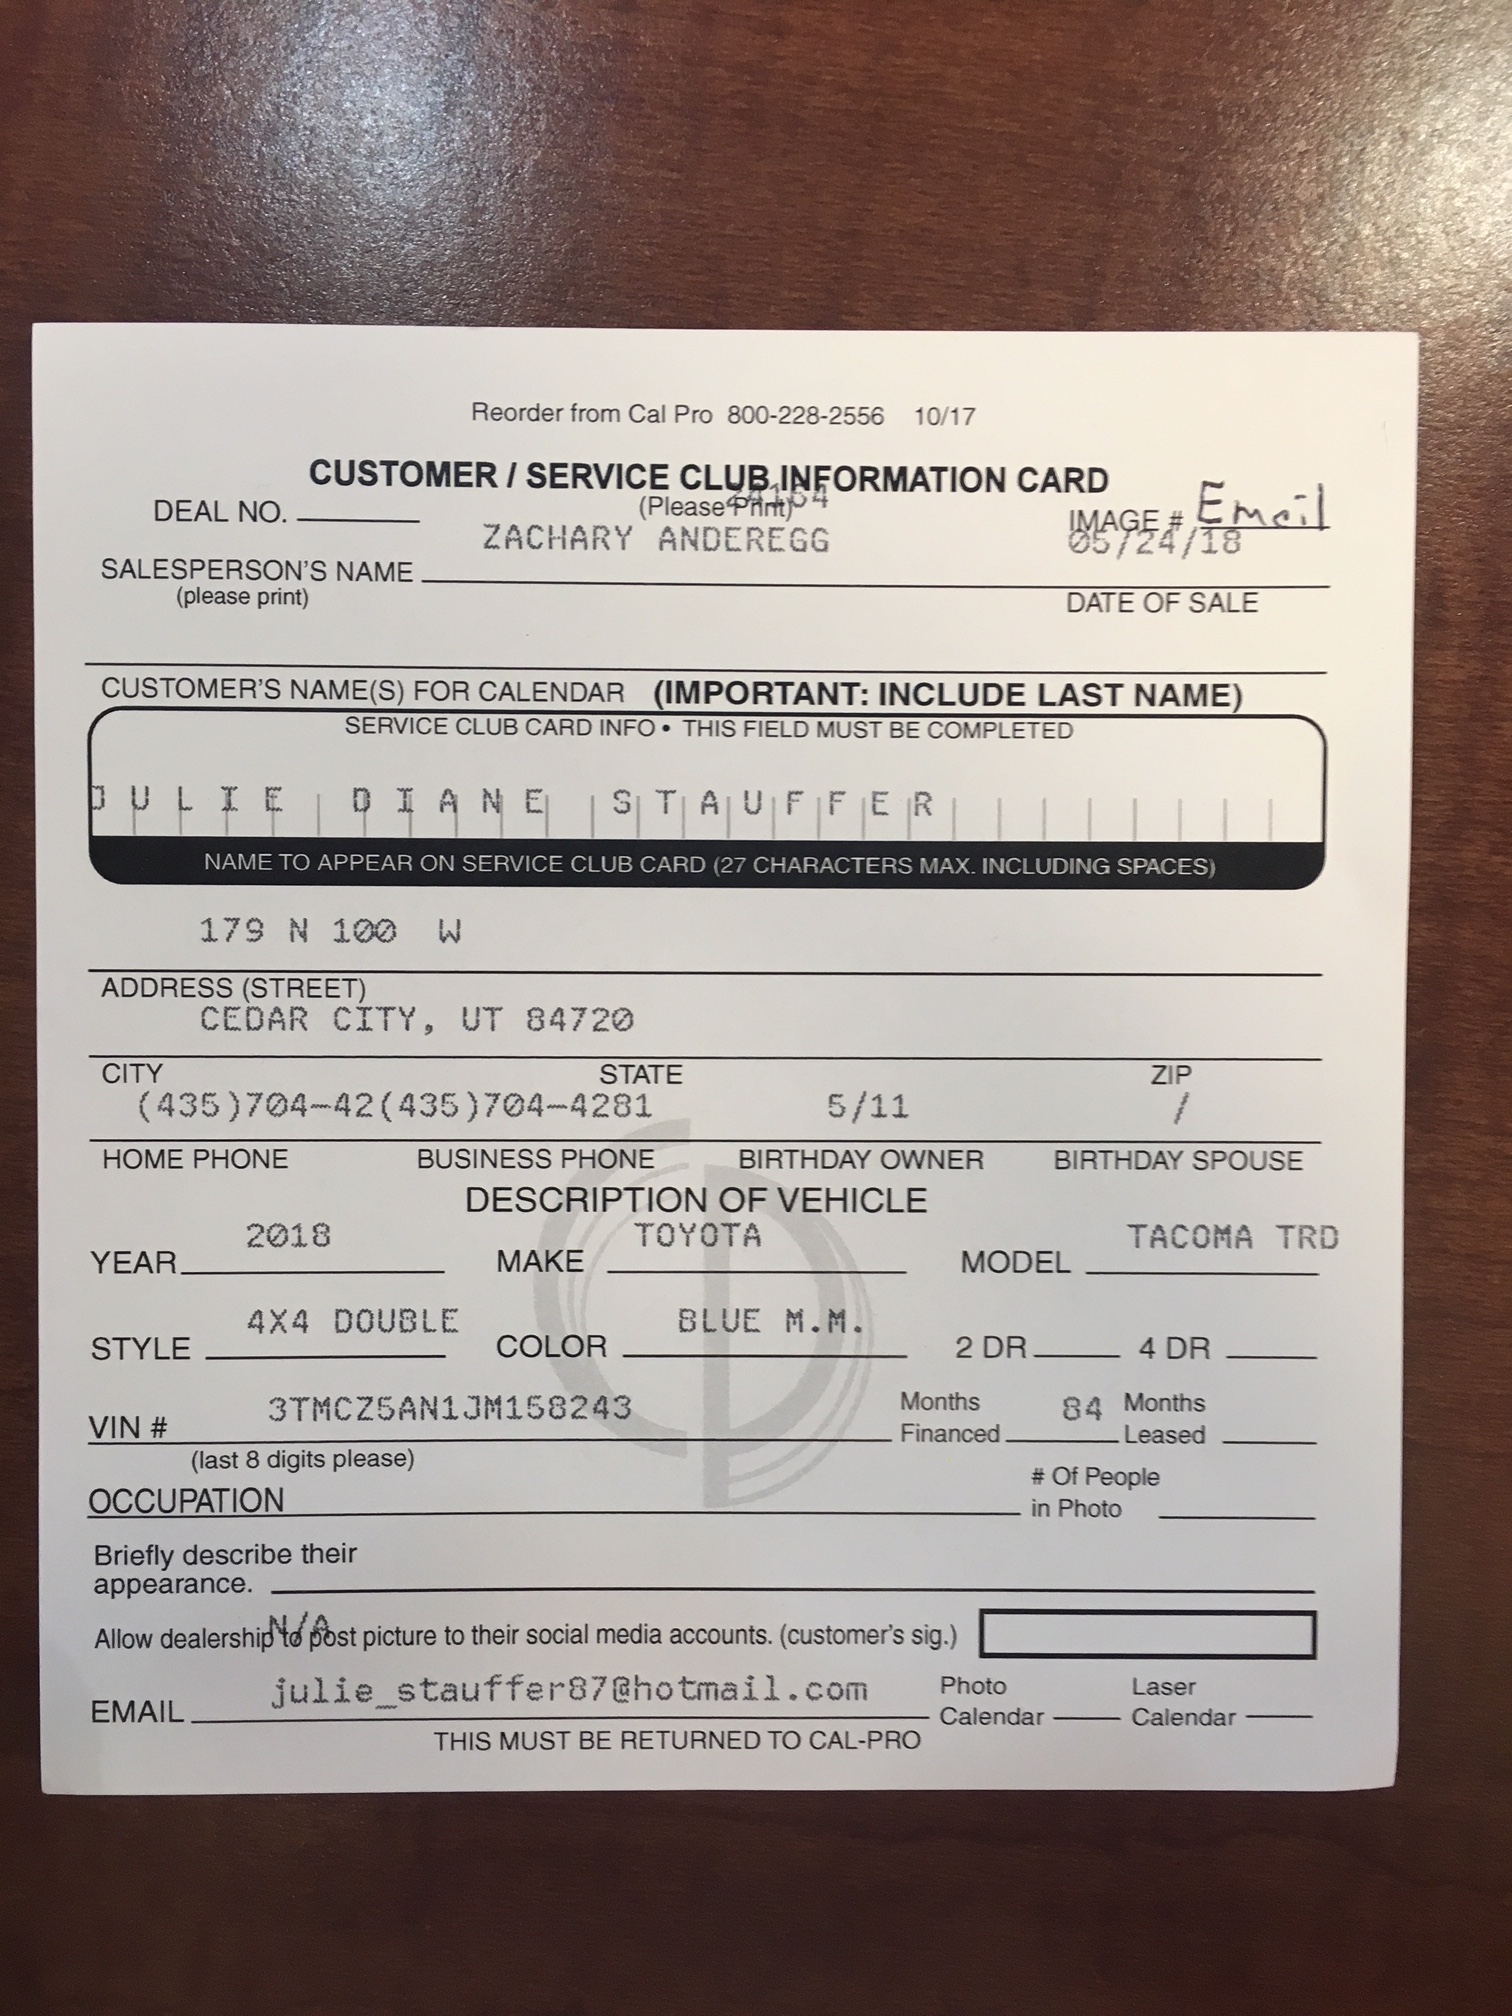 Reorder from Cal Pro 800-228-2556 10/17
CUSTOMER / SERVICE CLUB INFORMATION CARD
(Please Print)
DEAL NO.
IMAGE # Email
ZACHARY ANDEREGG 05/24/18
SALESPERSON'S NAME
(please print) DATE OF SALE
CUSTOMER'S NAME(S) FOR CALENDAR (IMPORTANT: INCLUDE LAST NAME)
SERVICE CLUB CARD INFO • THIS FIELD MUST BE COMPLETED
JULIE DIANE STAUFFER
NAME TO APPEAR ON SERVICE CLUB CARD (27 CHARACTERS MAX. INCLUDING SPACES)
179 N 100 W
ADDRESS (STREET)
CEDAR CITY, UT 84720
CITY STATE ZIP
(435)704-42(435)704-4281 5/11 /
HOME PHONE BUSINESS PHONE BIRTHDAY OWNER BIRTHDAY SPOUSE
DESCRIPTION OF VEHICLE
2018 TOYOTA TACOMA TRD
YEAR MAKE MODEL
4X4 DOUBLE BLUE M.M.
STYLE COLOR 2 DR 4 DR
3TMCZ5AN1JM158243 Months 84 Months
VIN # Financed Leased
(last 8 digits please)
# Of People
OCCUPATION in Photo
Briefly describe their
appearance.
N/A
Allow dealership to post picture to their social media accounts. (customer's sig.)
julie_stauffer87@hotmail.com Photo Laser
EMAIL Calendar Calendar
THIS MUST BE RETURNED TO CAL-PRO